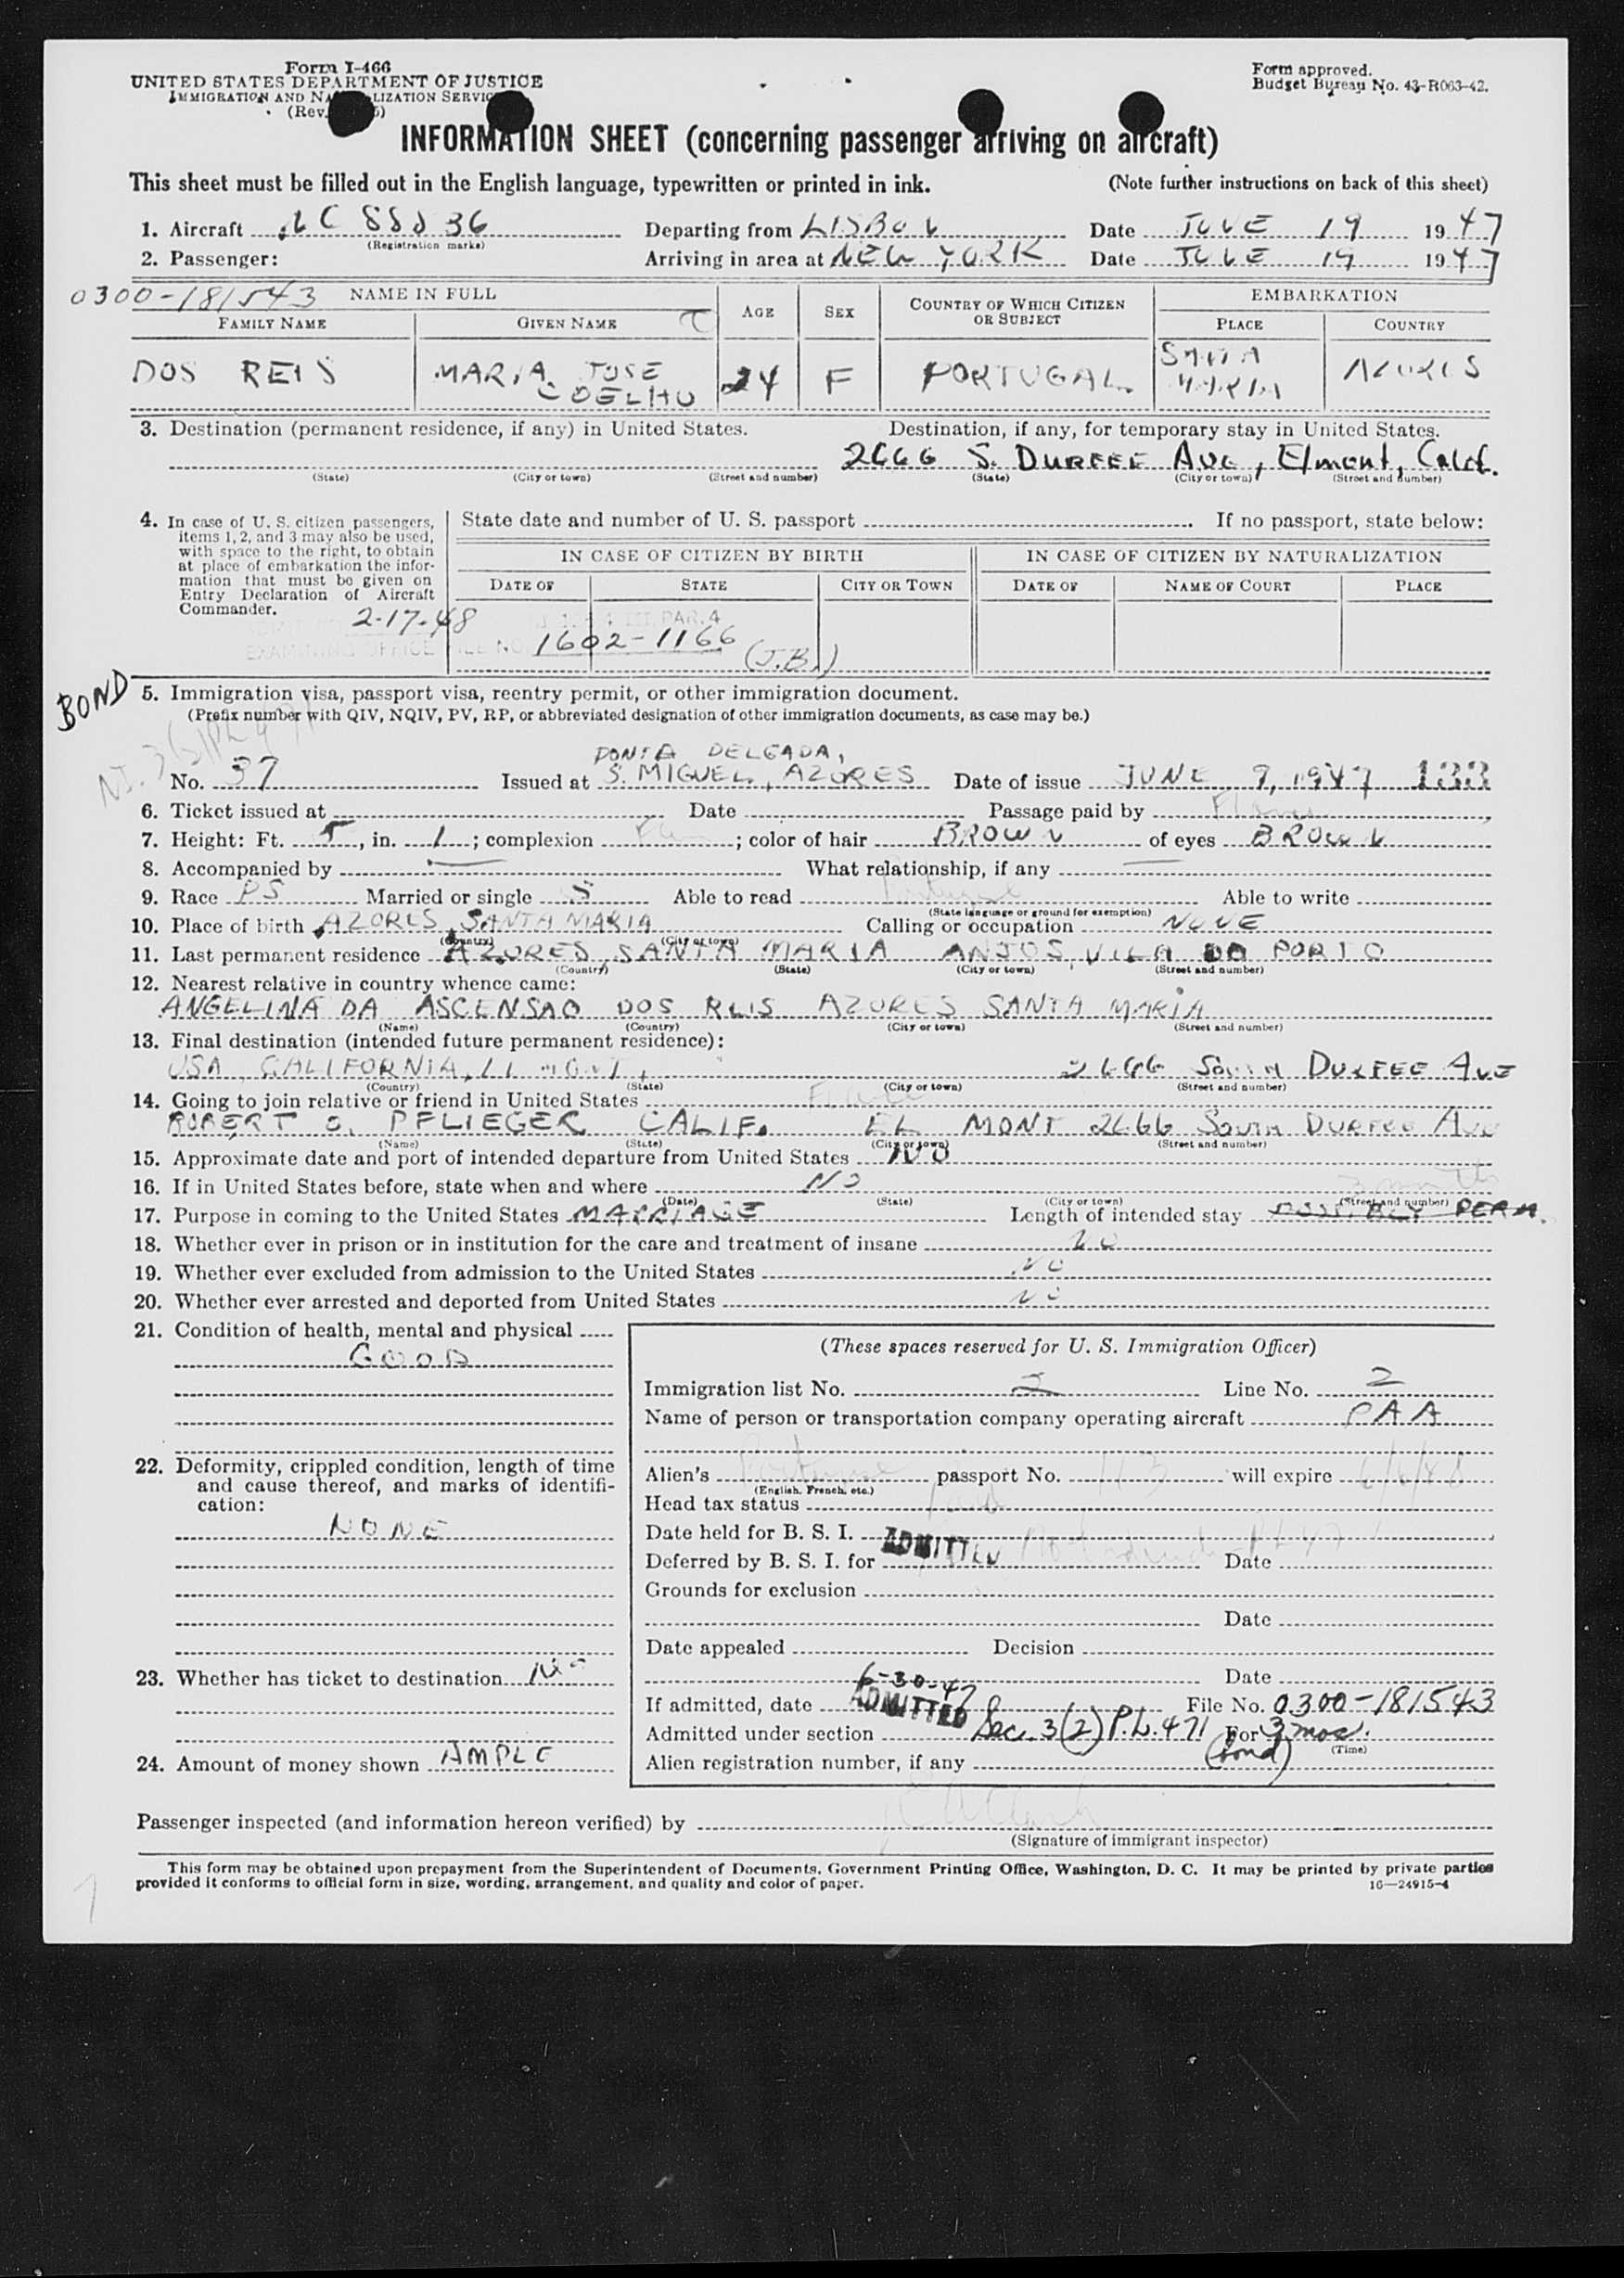 Form I-466
UNITED STATES DEPARTMENT OF JUSTICE
IMMIGRATION AND NA LIZATION SERVIC
(Rev. 5)
Form approved.
Budget Bureau No. 43-R063-42.
INFORMATION SHEET (concerning passenger arriving on aircraft)
This sheet must be filled out in the English language, typewritten or printed in ink. (Note further instructions on back of this sheet)
1. Aircraft Departing from LISBON Date JUNE 19 1947
(Registration marks)
2. Passenger: Arriving in area at NEW YORK Date JUNE 19 1947
0300-181543 NAME IN FULL AGE SEX COUNTRY OF WHICH CITIZEN OR SUBJECT EMBARKATION
FAMILY NAME GIVEN NAME PLACE COUNTRY
DOS REIS MARIA JOSE COELHO 24 F PORTUGAL SANTA MARIA AZORES
3. Destination (permanent residence, if any) in United States. Destination, if any, for temporary stay in United States.
2666 S. DURFEE AVE, Elmont, Calif.
(State) (City or town) (Street and number) (State) (City or town) (Street and number)
4. In case of U. S. citizen passengers, items 1, 2, and 3 may also be used, with space to the right, to obtain at place of embarkation the information that must be given on Entry Declaration of Aircraft Commander.
State date and number of U. S. passport If no passport, state below:
IN CASE OF CITIZEN BY BIRTH IN CASE OF CITIZEN BY NATURALIZATION
DATE OF STATE CITY OR TOWN DATE OF NAME OF COURT PLACE
2-17-48 PAR. 4
EXAMINING OFFICE FILE NO. 1602-1166 (J.B.)
BOND
5. Immigration visa, passport visa, reentry permit, or other immigration document.
(Prefix number with QIV, NQIV, PV, RP, or abbreviated designation of other immigration documents, as case may be.)
PONTA DELGADA,
No. 37 Issued at S. MIGUEL, AZORES Date of issue JUNE 9, 1947 133
6. Ticket issued at Date Passage paid by
7. Height: Ft. 5, in. 1; complexion ; color of hair BROWN of eyes BROWN
8. Accompanied by What relationship, if any
9. Race PS Married or single S Able to read Able to write
(State language or ground for exemption)
10. Place of birth AZORES, SANTA MARIA Calling or occupation NONE
(Country) (City or town)
11. Last permanent residence AZORES, SANTA MARIA ANJOS, VILA DO PORTO
(Country) (State) (City or town) (Street and number)
12. Nearest relative in country whence came:
ANGELINA DA ASCENSAO DOS REIS AZORES SANTA MARIA
(Name) (Country) (City or town) (Street and number)
13. Final destination (intended future permanent residence):
USA, CALIFORNIA, 2666 SOUTH DURFEE AVE
(Country) (State) (City or town) (Street and number)
14. Going to join relative or friend in United States
ROBERT O. PFLIEGER CALIF. EL MONT 2666 SOUTH DURFEE AVE
(Name) (State) (City or town) (Street and number)
15. Approximate date and port of intended departure from United States NO
16. If in United States before, state when and where NO
(Date) (State) (City or town) (Street and number)
17. Purpose in coming to the United States MARRIAGE Length of intended stay POSSIBLY PERM.
18. Whether ever in prison or in institution for the care and treatment of insane NO
19. Whether ever excluded from admission to the United States NO
20. Whether ever arrested and deported from United States NO
21. Condition of health, mental and physical
GOOD
22. Deformity, crippled condition, length of time and cause thereof, and marks of identification:
NONE
23. Whether has ticket to destination
24. Amount of money shown AMPLE
(These spaces reserved for U. S. Immigration Officer)
Immigration list No. 2 Line No. 2
Name of person or transportation company operating aircraft PAA
Alien's Portuguese passport No. 113 will expire 6/6/48
(English, French, etc.)
Head tax status
Date held for B. S. I. ADMITTED
Deferred by B. S. I. for Date
Grounds for exclusion
Date
Date appealed Decision
6-30-47 Date
If admitted, date ADMITTED File No. 0300-181543
Admitted under section Sec. 3(2) P.L. 471 For 3 mos.
(Time)
Alien registration number, if any (bond)
Passenger inspected (and information hereon verified) by
(Signature of immigrant inspector)
This form may be obtained upon prepayment from the Superintendent of Documents, Government Printing Office, Washington, D. C. It may be printed by private parties
provided it conforms to official form in size, wording, arrangement, and quality and color of paper. 16—24915-4